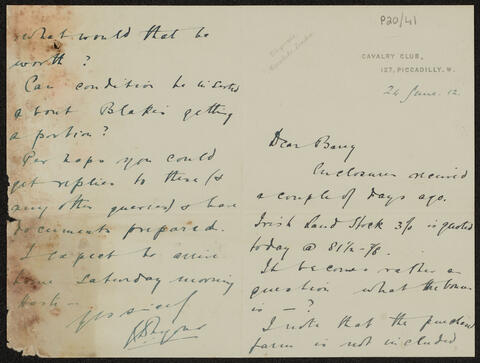 P20/41
CAVALRY CLUB,
127, PICCADILLY. W.
24 June. 12
Dear Barry
Enclosures received
a couple of days ago.
Irish Land Stock 3% is quoted
today @ 81½ -
It becomes rather a
question what the bonus
is — ?
I note that the purchase
farm is not included
what would that be
worth ?
Can condition be inserted
about Blakes getting
a portion ?
Perhaps you could
get replies to these (&
any other queries) & have
documents prepared.
I expect to arrive
home Saturday morning